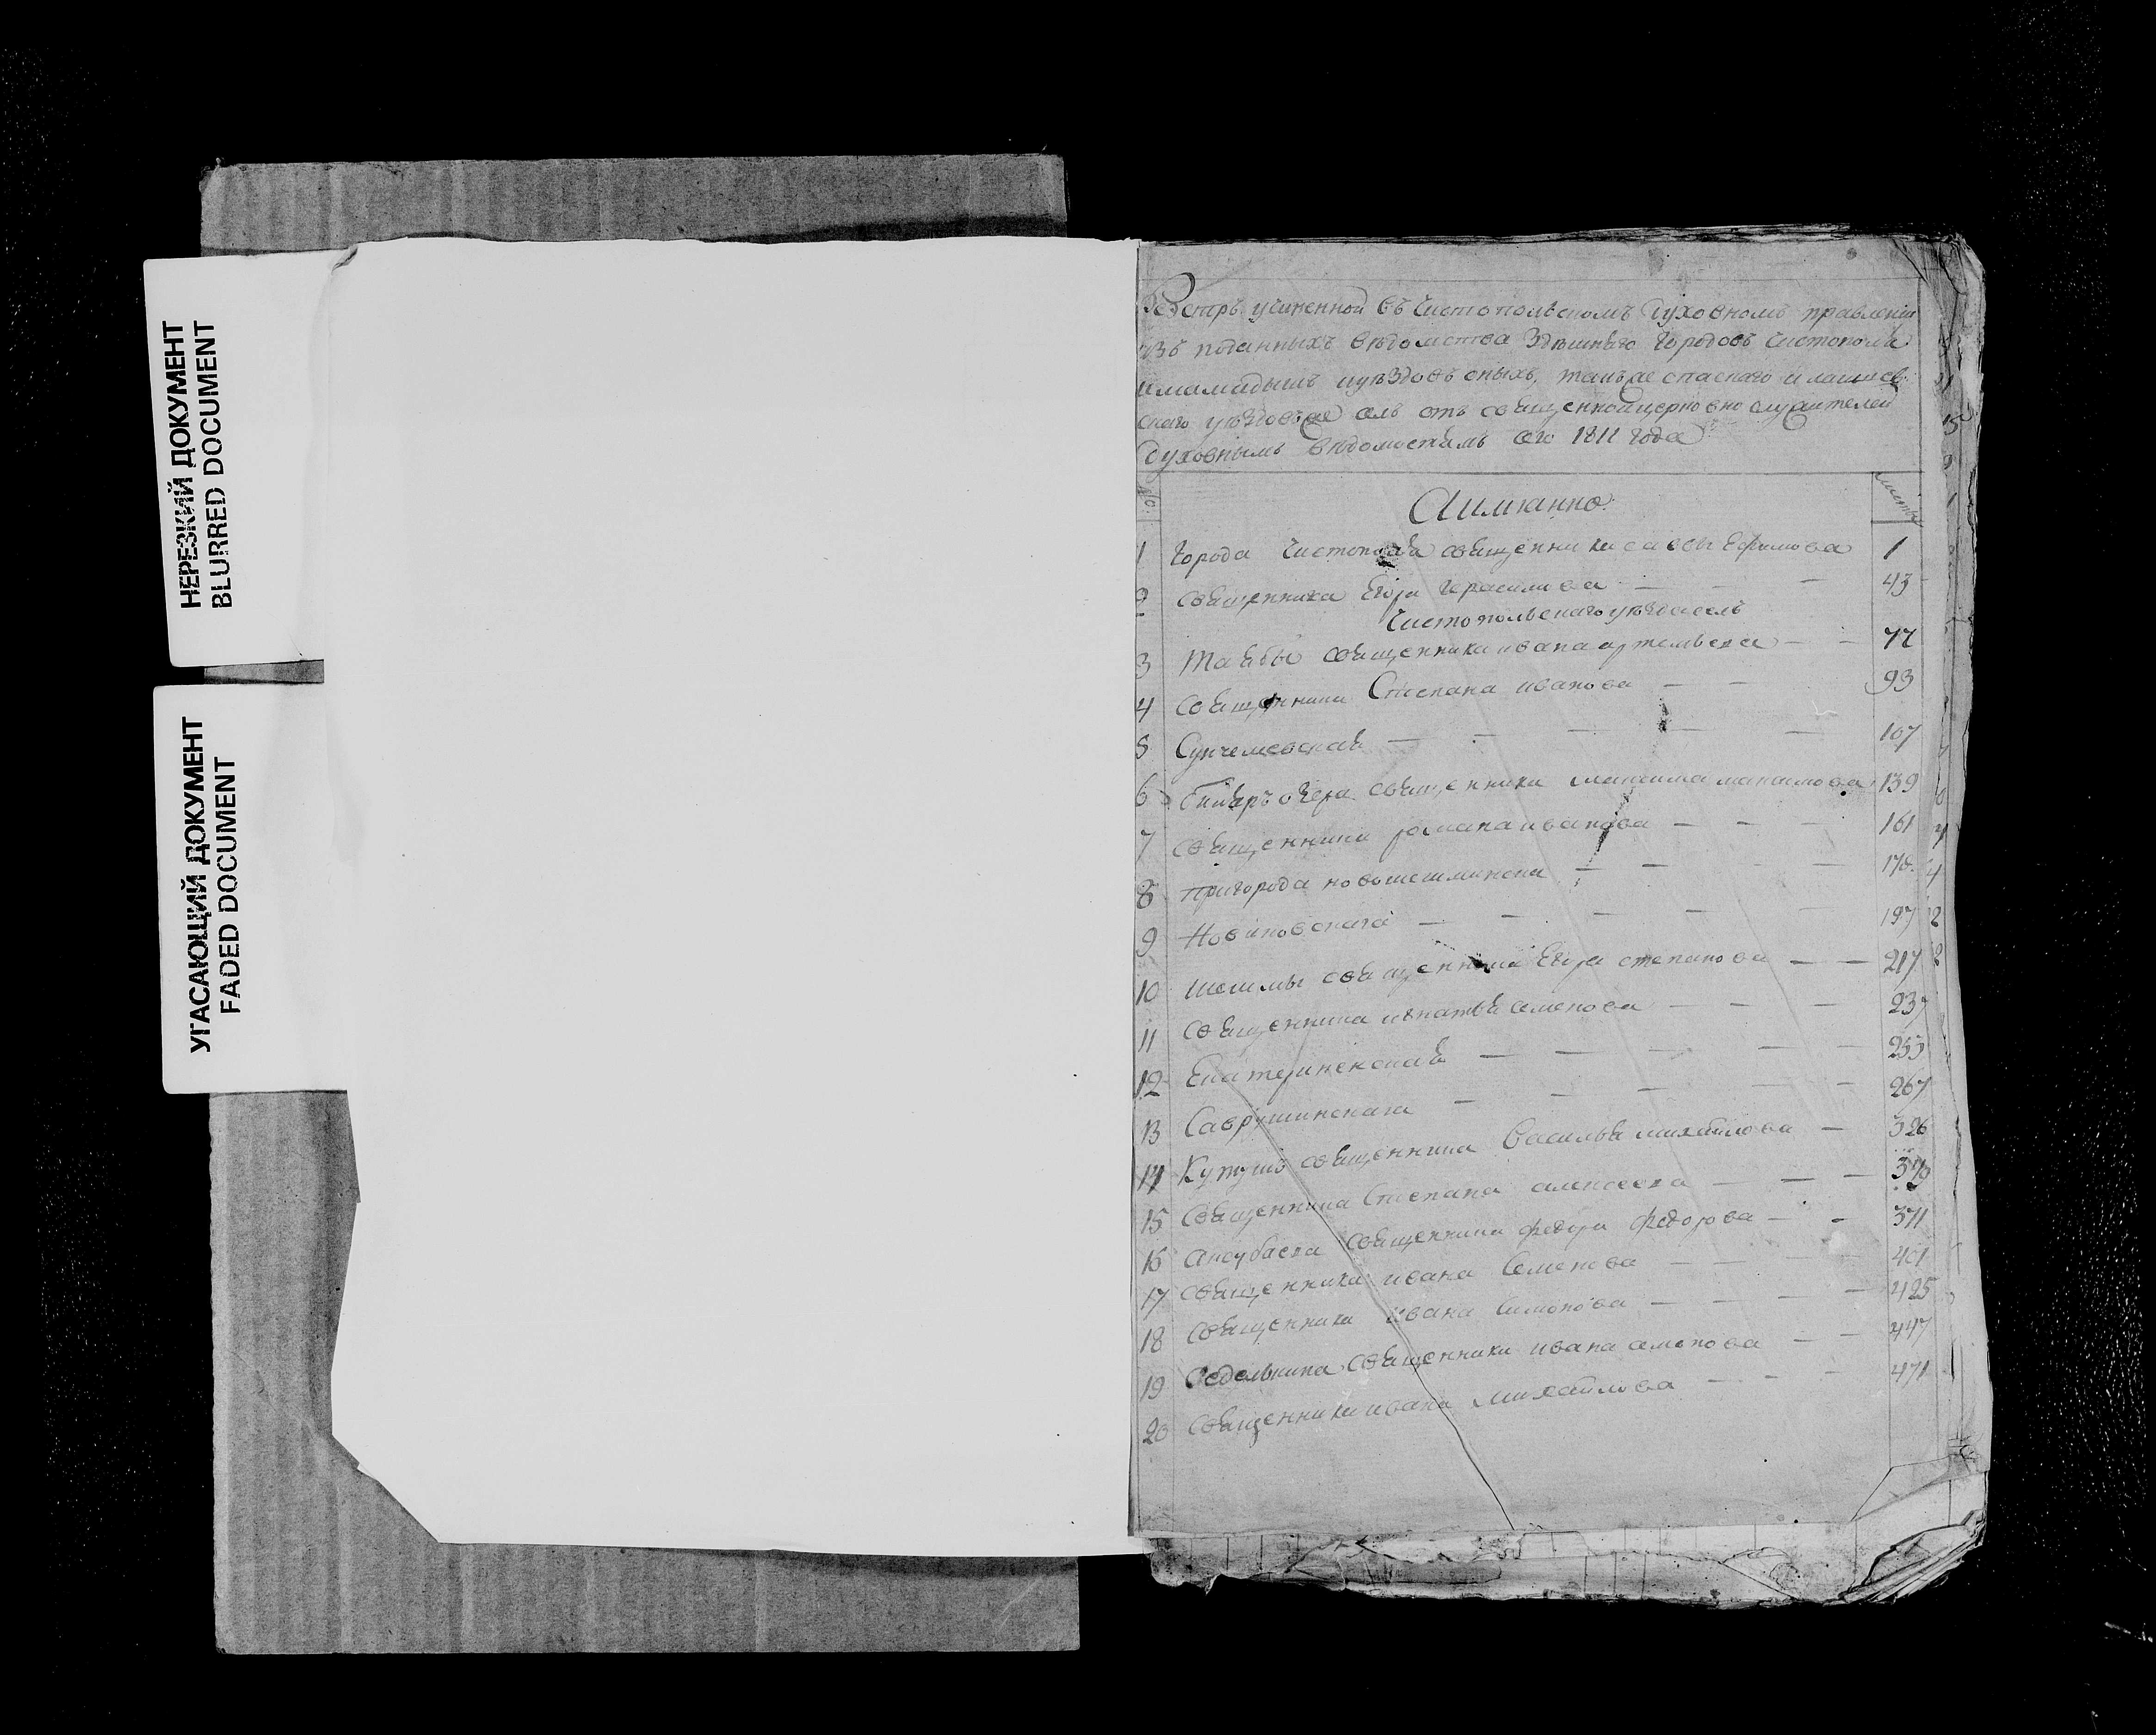 НЕРЕЗКИЙ ДОКУМЕНТ
BLURRED DOCUMENT
УГАСАЮЩИЙ ДОКУМЕНТ
FADED DOCUMENT
Реэстръ учиненной въ Чистопольскомъ Духовномъ правленіи
изъ поданныхъ вѣдомства здѣшняго городовъ Чистополя
и мамадышъ и уѣздовъ оныхъ, такъже спаскаго и лаишев
скаго уѣздовъже селъ отъ священноицерковнослужителей
духовнымъ вѣдомостямъ сего 1811 года
Аимянно
Листы
1 города Чистополя священника саввы Ефимова 1
2 священника Егора Герасимова 43
Чистопольскаго уѣзда селъ
3 священника ивана артемьева 77
4 священника Степана иванова 93
5 107
6 священника максима максимова 139
7 священника романа иванова 161
8 пригорода новошешминска 178
9 Новиковскага 197
10 шешмы священника Егора степанова 217
11 священника игнатья семенова 237
12 Екатерининская 253
13 Саврушинскага 267
14 Кутушъ священника Василья михайлова 326
15 священника Степана алексеева
16 аксубаева священника федора федорова 371
17 священника ивана Семенова 401
18 священника ивана Симонова 425
19 священника ивана семенова 447
20 священника ивана михайлова 471